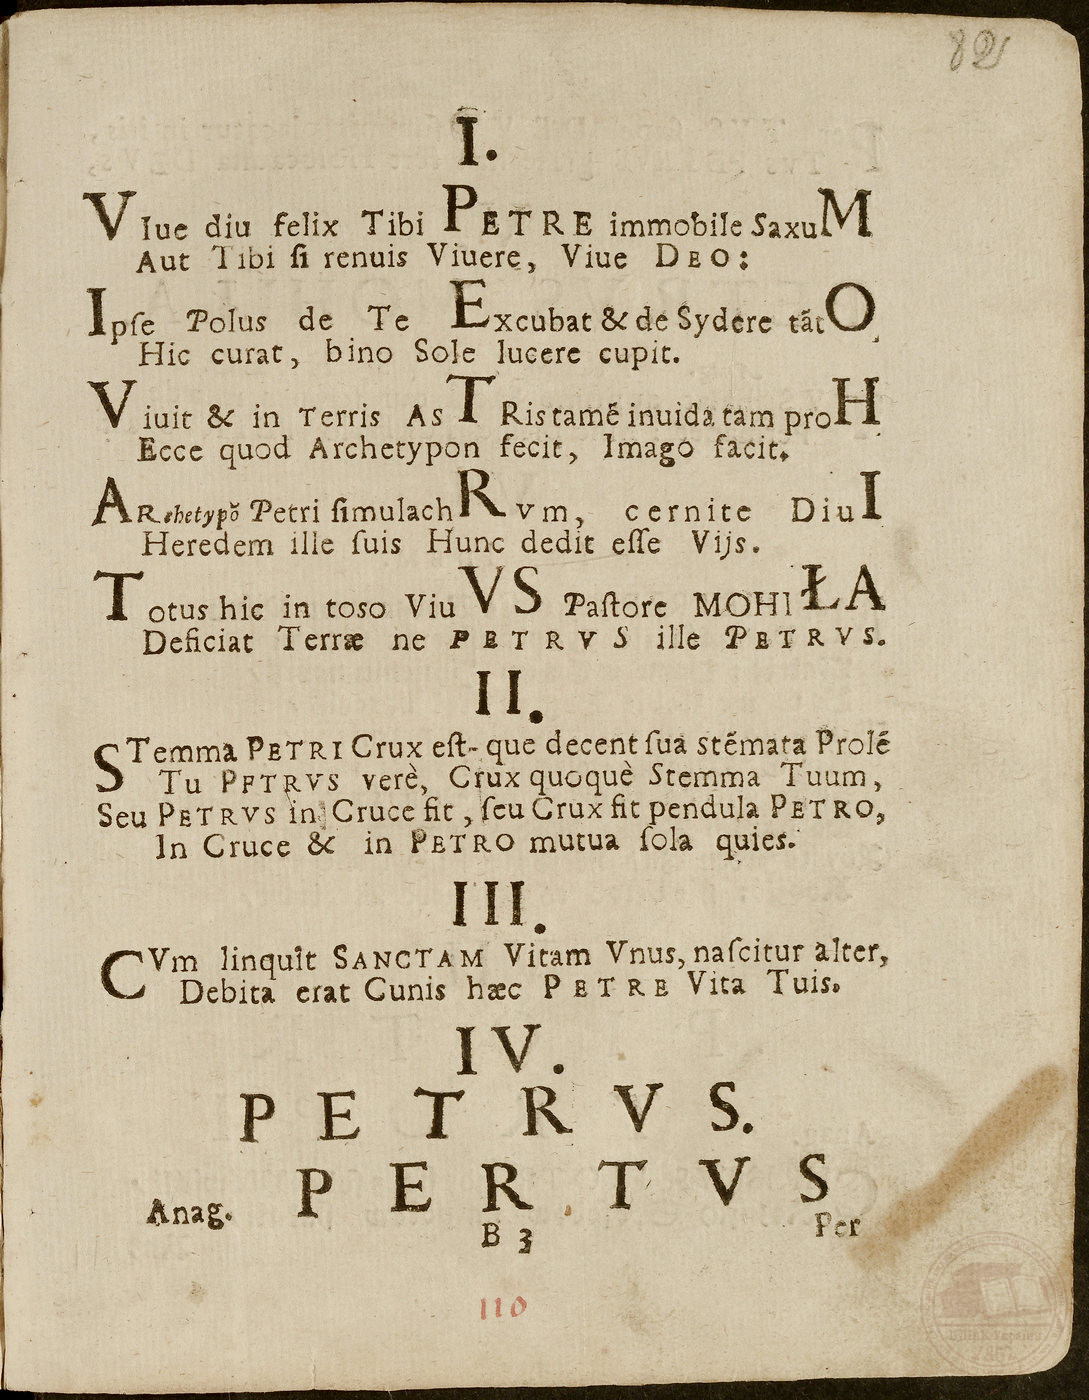 82
I.
VIue diu felix Tibi PETRE immobile SaxuM
Aut Tibi ſi renuis Viuere, Viue DEO:
Ipſe Polus de Te Excubat & de Sydere tãtO
Hic curat, bino Sole lucere cupit.
Viuit & in Terris AsTRis tamẽ inuida tam proH
Ecce quod Archetypon fecit, Imago facit.
ARchetypõ Petri ſimulachRVm, cernite DiuI
Heredem ille ſuis Hunc dedit eſſe Vijs.
Totus hic in toso ViuVS Paſtore MOHIŁA
Deficiat Terræ ne PETRVS ille PETRVS.
II.
STemma PETRI Crux eſt-que decent ſua stẽmata Prolẽ
Tu PETRVS verè, Crux quoquè Stemma Tuum,
Seu PETRVS in Cruce fit, ſeu Crux fit pendula PETRO,
In Cruce & in PETRO mutua ſola quies.
III.
CVm linquit SANCTAM Vitam Vnus, naſcitur alter,
Debita erat Cunis hæc PETRE Vita Tuis.
IV.
PETRVS.
Anag. PERTVS
B 3 Per
110